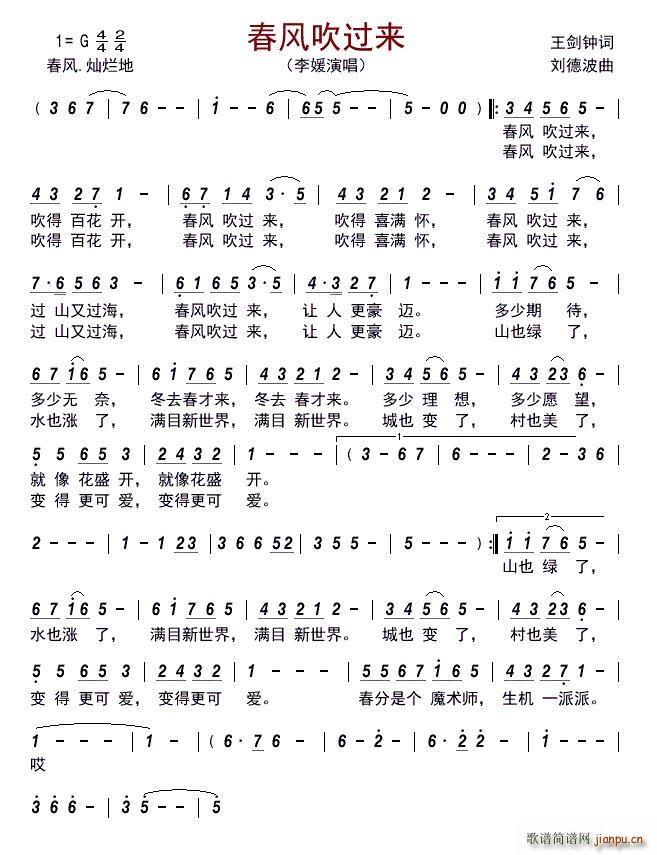 春风吹过来
1= G 4/4 2/4
王剑钟词
春风.灿烂地
（李媛演唱）
刘德波曲
( 3 6 7 | 7 6 - - | 1 - - 6 | 65 5 - - | 5 - 0 0 ) ‖: 3 4 5 6 5 - |
春风 吹过来，
春风 吹过来，
4 3 2 7 1 - | 6 7 1 4 3· 5 | 4 3 2 1 2 - | 3 4 5 1 7 6 |
吹得 百花 开， 春风 吹过 来， 吹得 喜满 怀， 春风 吹过 来，
吹得 百花 开， 春风 吹过 来， 吹得 喜满 怀， 春风 吹过 来，
7· 6 5 6 3 - | 6 1 6 5 3· 5 | 4· 3 2 7 1 - | 1 1 7 6 5 - |
过 山又过海， 春风吹过 来， 让 人 更豪 迈。 多少期 待，
过 山又过海， 春风吹过 来， 让 人 更豪 迈。 山也绿 了，
6 7 1 6 5 - | 6 1 7 6 5 | 4 3 2 1 2 - | 3 4 5 6 5 - | 4 3 2 3 6 - |
多少无 奈， 冬去春才来， 冬去 春才来。 多少 理 想， 多少愿 望，
水也涨 了， 满目新世界， 满目 新世界。 城也 变 了， 村也 美 了，
5 5 6 5 3 - | 2 4 3 2 1 - - | ( 3 - 6 7 | 6 - - - | 2 - 3 6 |
1
就 像 花盛 开， 就像花盛 开。
变 得 更可 爱， 变得更可 爱。
2 - - - | 1 - 1 23 | 3 6 6 52 | 3 5 5 - | 5 - - - ) :‖ 1 1 7 6 5 - |
2
山也 绿 了，
6 7 1 6 5 - | 6 1 7 6 5 | 4 3 2 1 2 - | 3 4 5 6 5 - | 4 3 23 6 - |
水也涨 了， 满目新世界， 满目 新世界。 城也 变 了， 村也美 了，
5 5 6 5 3 - | 2 4 3 2 1 - - | 5 5 6 7 1 6 5 | 4 3 2 7 1 - |
变 得 更可 爱， 变得更可 爱。 春分是个 魔术师， 生机 一派派。
1 - - - | 1 - - - | ( 6· 7 6 - | 6 - - 2 | 6· 2 2 - |
哎
3 6 6 - | 3 5 - - | 5
歌谱简谱网
jianpu.cn